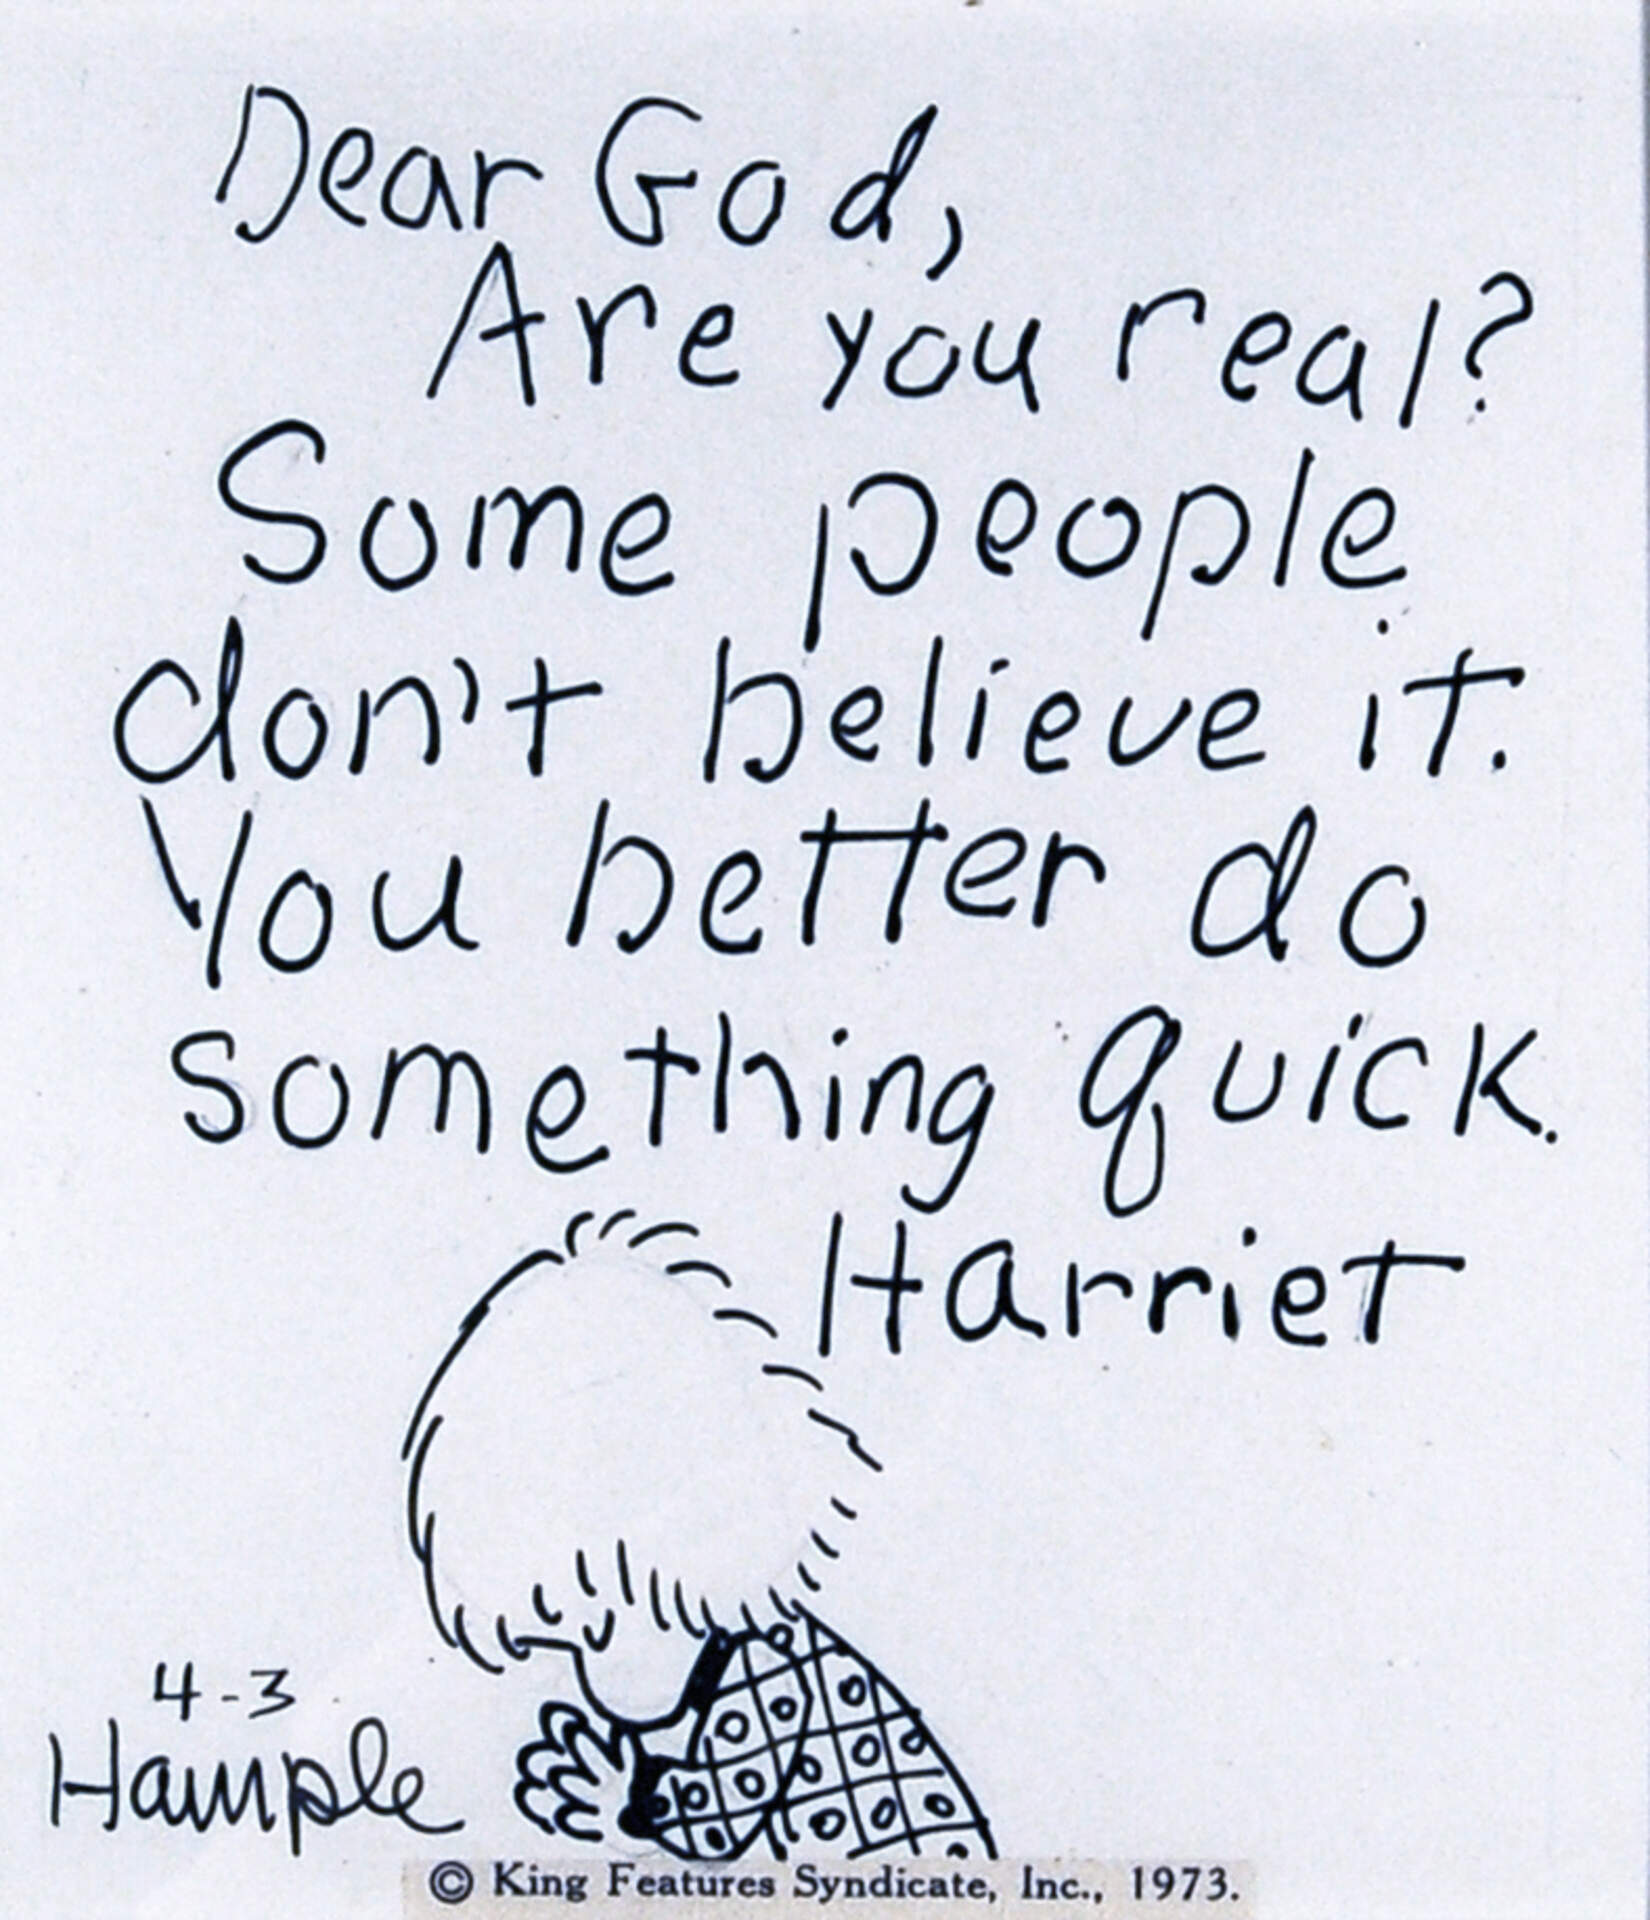 Dear God,
Are you real?
Some people
don't believe it.
You better do
something quick.
Harriet
4-3
Hample
© King Features Syndicate, Inc., 1973.